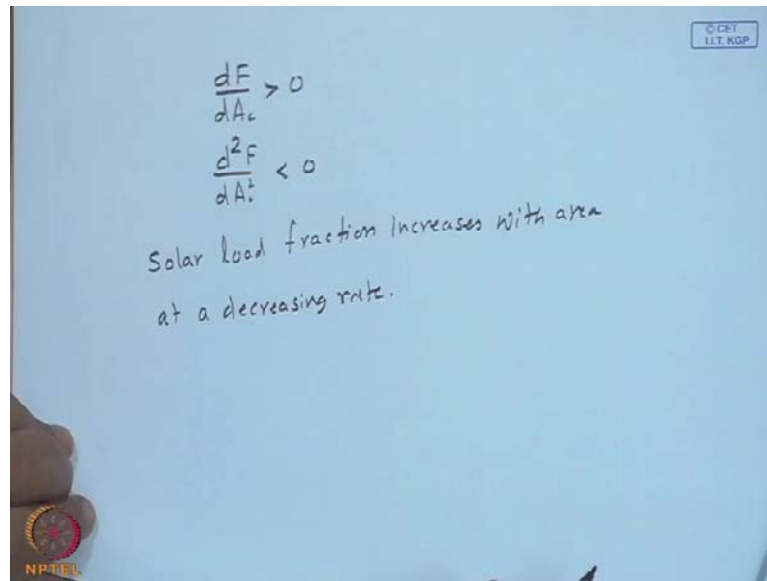 © CET
I.I.T. KGP
dF/dAc > 0
d²F/dAc² < 0
Solar load fraction increases with area
at a decreasing rate.
NPTEL